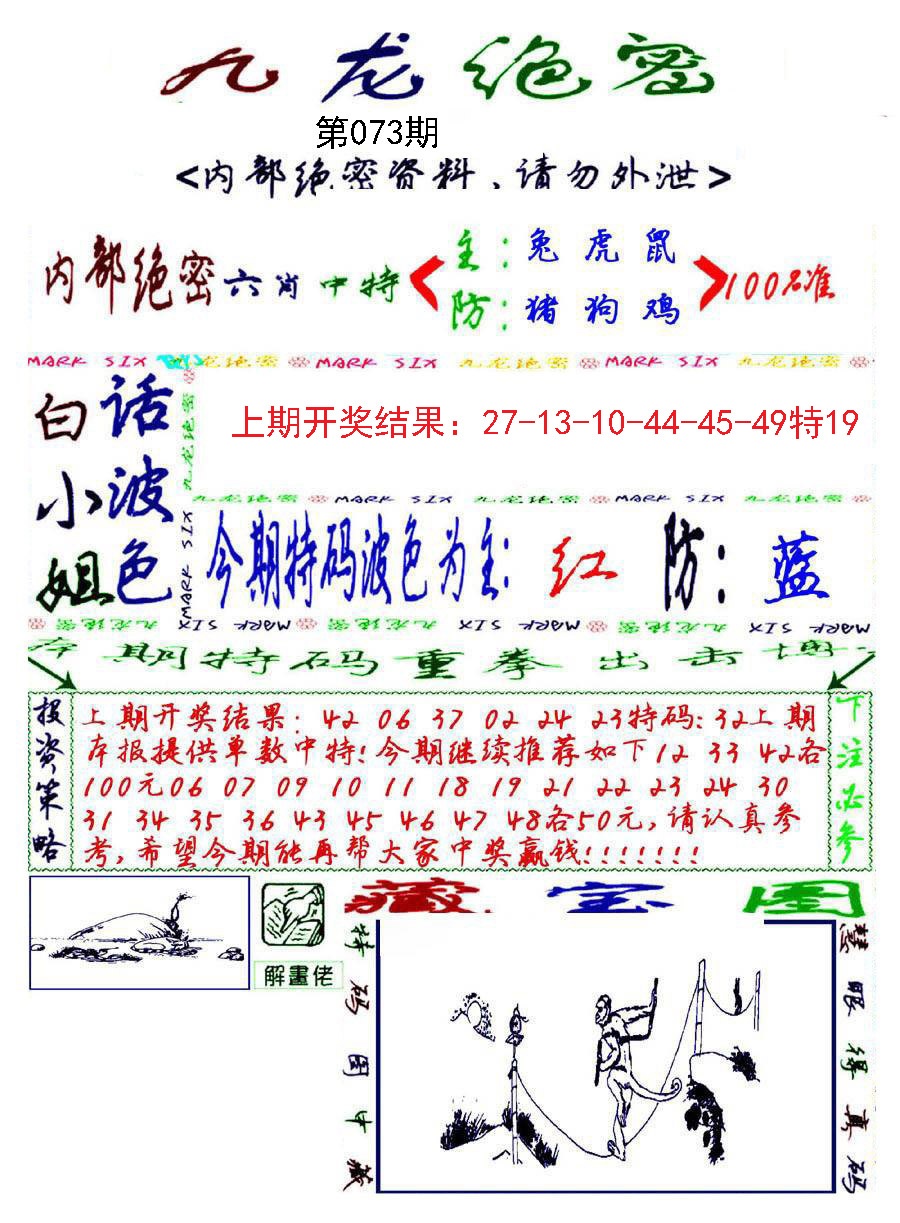 九龙绝密
第073期
<内部绝密资料、请勿外泄>
内部绝密六肖中特
主:兔虎鼠
防:猪狗鸡
100%准
MARK SIX 九龙绝密 MARK SIX 九龙绝密 MARK SIX 九龙绝密
白小姐
话波色
九龙绝密
MARK SIX
上期开奖结果：27-13-10-44-45-49特19
九龙绝密 MARK SIX 九龙绝密 MARK SIX 九龙绝密
今期特码波色为主:红 防:蓝
九龙绝密 MARK SIX 九龙绝密 MARK SIX 九龙绝密 MARK SIX
期特码重拳出击
投资策略
上期开奖结果: 42 06 37 02 24 23特码:32上期
本报提供单数中特!今期继续推荐如下12 33 42各
100元06 07 09 10 11 18 19 21 22 23 24 30
31 34 35 36 43 45 46 47 48各50元,请认真参
考,希望今期能再帮大家中奖赢钱!!!!!!!
下注必参
解畫佬
藏宝图
特码图中藏
慧眼得真码